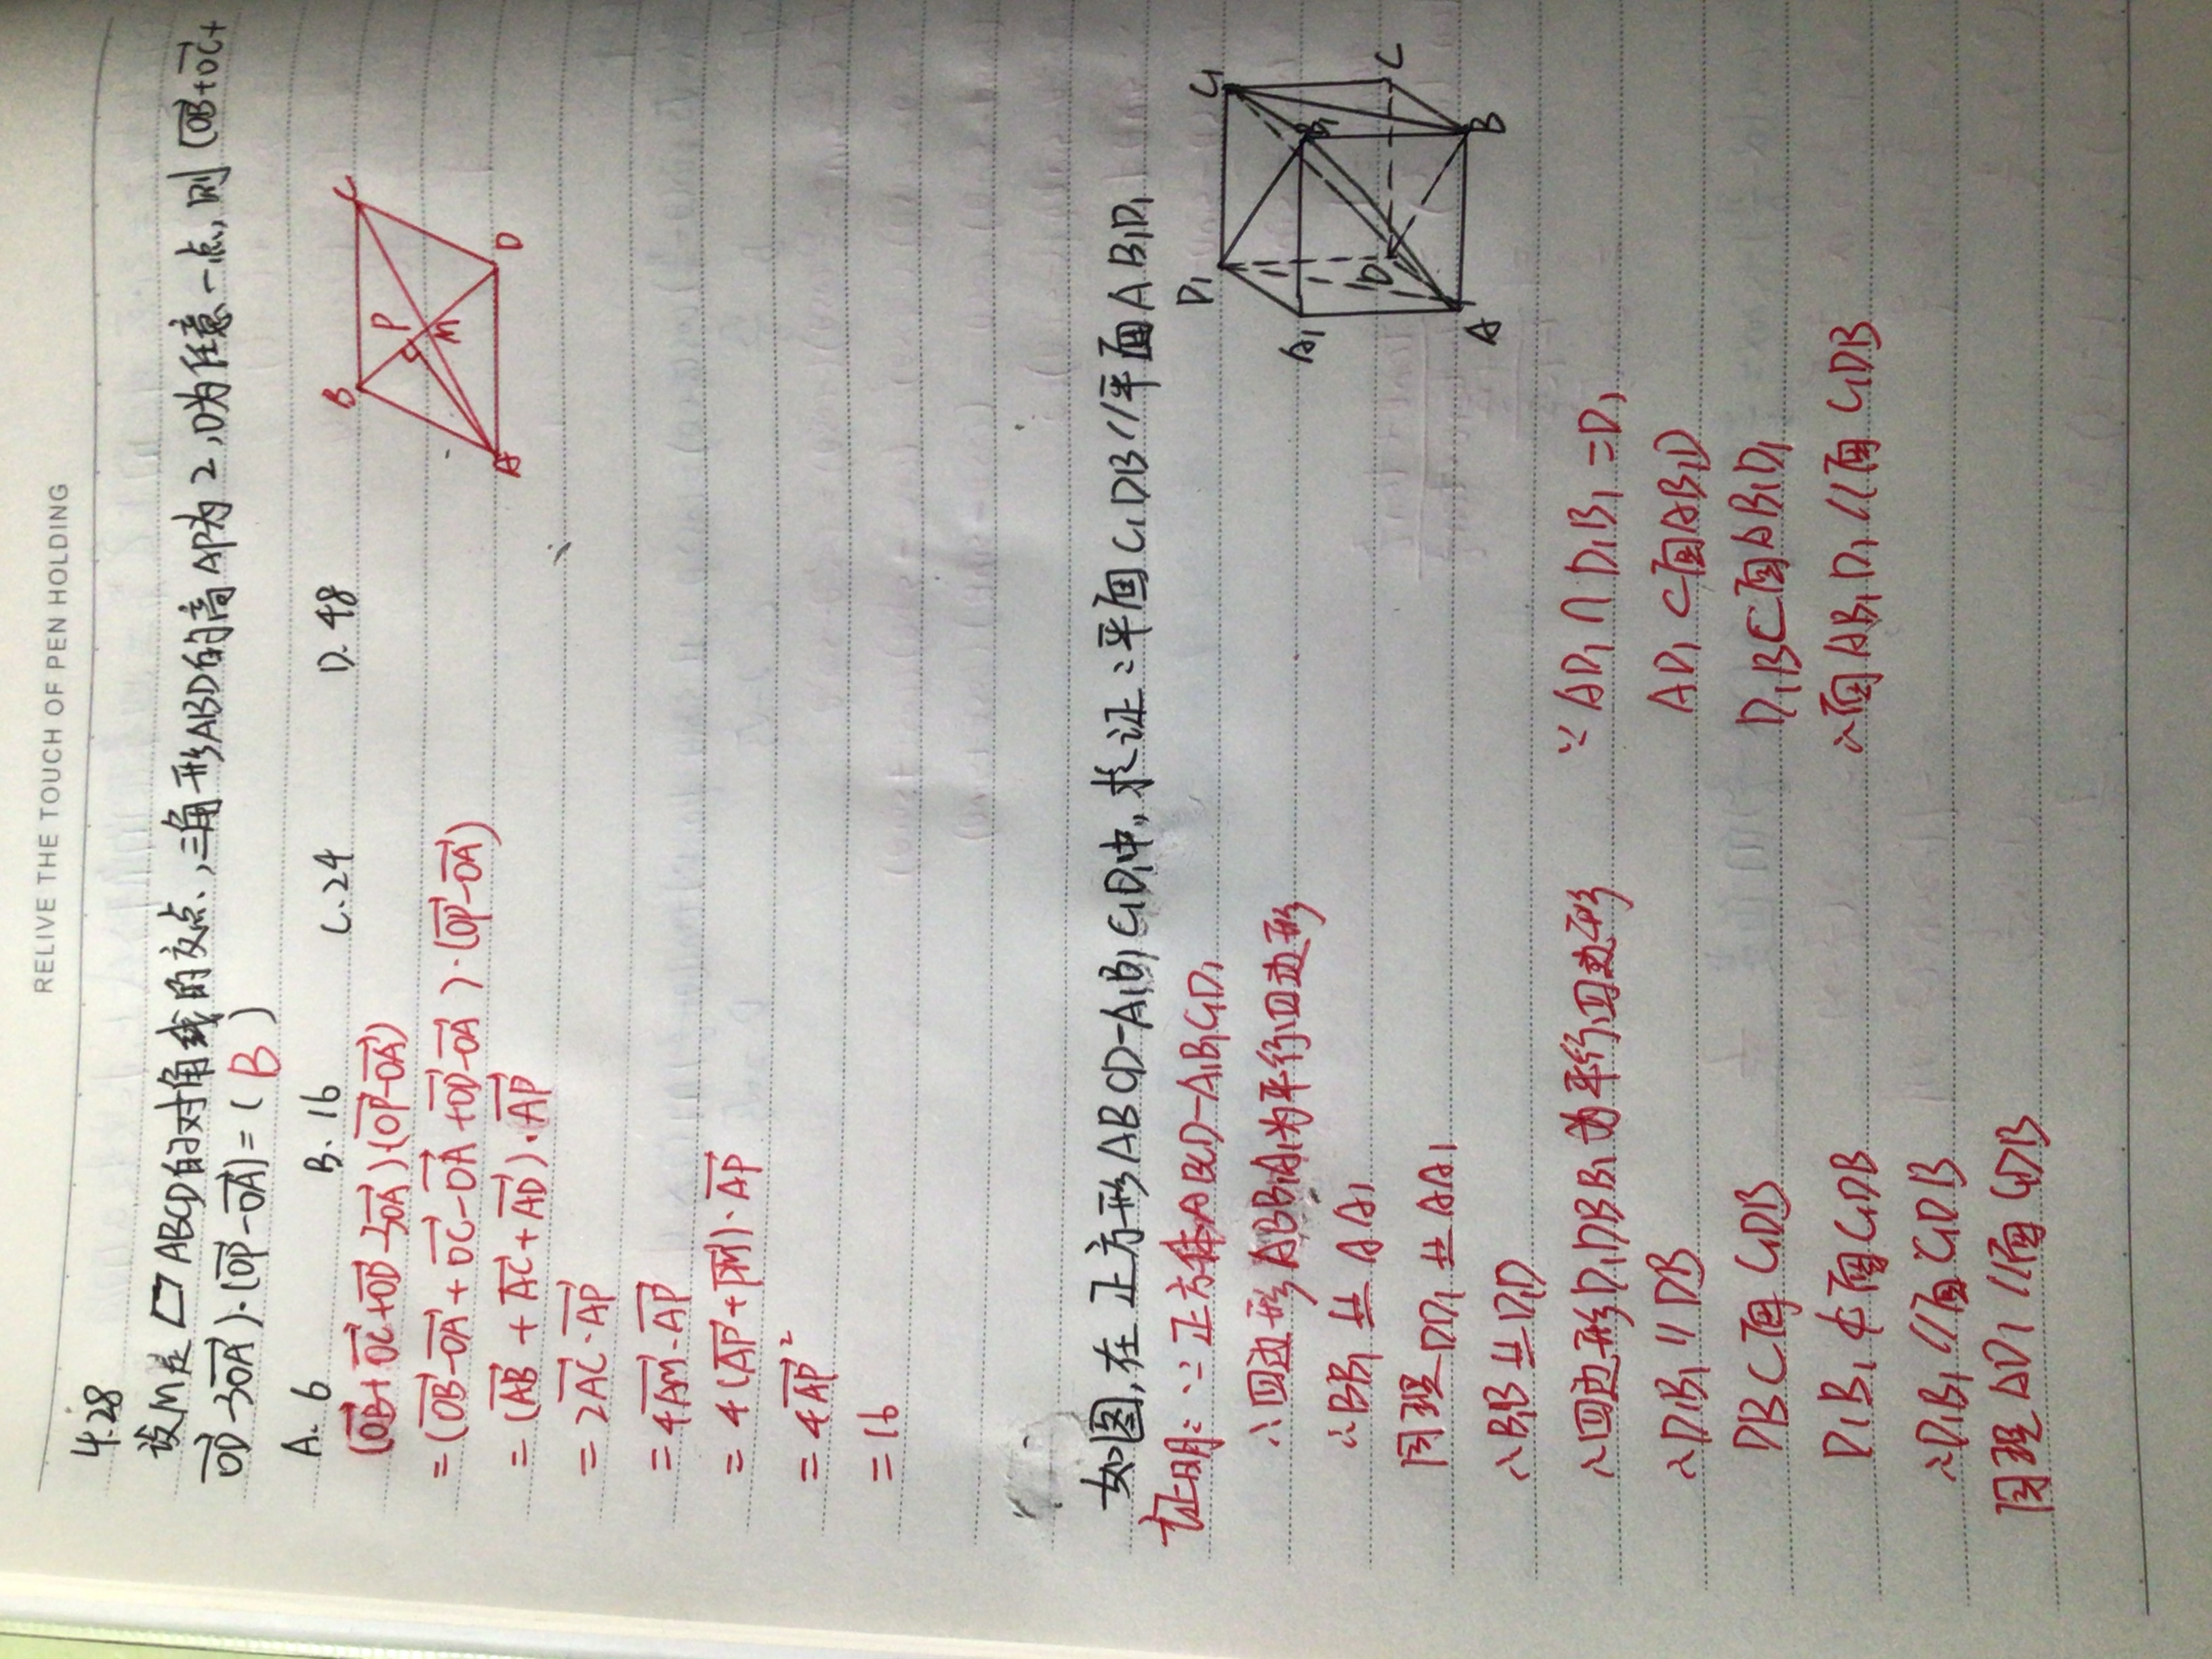 RELIVE THE TOUCH OF PEN HOLDING
4.28
设M是▱ABCD的对角线的交点,三角形ABD的高AP为2,O为任意一点,则(OB→+OC→+
OD→-3OA→)·(OP→-OA→)=( B )
A. 6 B. 16 C. 24 D. 48
(OB→+OC→+OD→-3OA→)·(OP→-OA→)
=(OB→-OA→+OC→-OA→+OD→-OA→)·(OP→-OA→)
=(AB→+AC→+AD→)·AP→
=2AC→·AP→
=4AM→·AP→
=4(AP→+PM→)·AP→
=4AP→²
=16
B C
P
M
A D
如图,在正方形ABCD-A₁B₁C₁D₁中,求证:平面C₁DB//平面AB₁D₁
证明:∵正方体ABCD-A₁B₁C₁D₁
∴四边形ABB₁A₁为平行四边形
∴BB₁ ⩭ AA₁
同理DD₁ ⩭ AA₁
∴B₁B ⩭ D₁D
∴四边形D₁DBB₁为平行四边形
∴D₁B₁//DB
DB⊂面C₁DB
D₁B₁⊄面C₁DB
∴D₁B₁//面C₁DB
同理AD₁//面C₁DB
∵AD₁∩D₁B₁=D₁
AD₁⊂面AB₁D
D₁B⊂面AB₁D₁
∴面AB₁D₁//面C₁DB
D₁ C₁
A₁ B₁
D C
A B